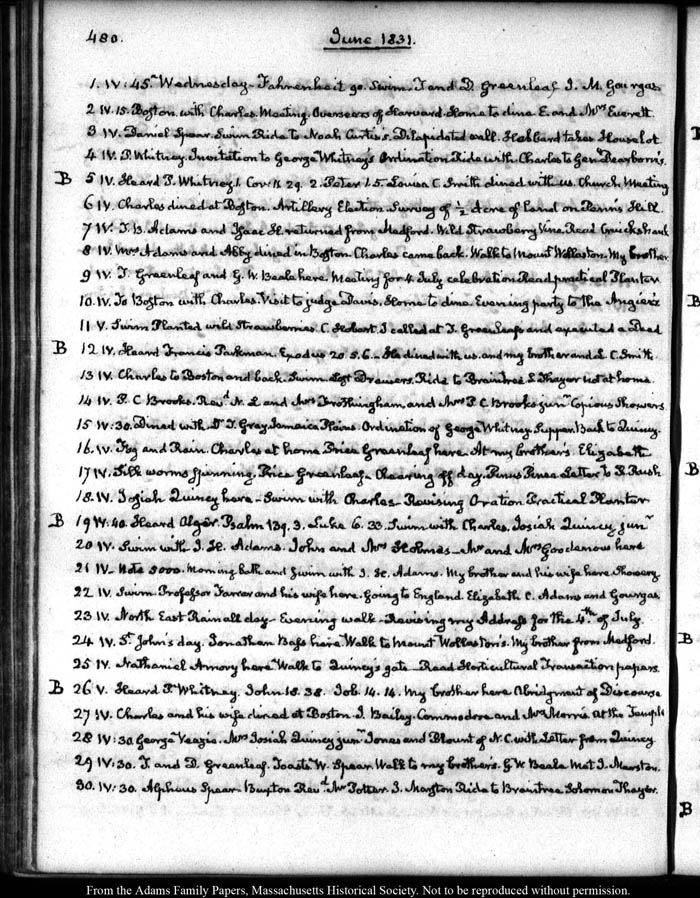 480.
June 1831.
1. IV: 45. Wednesday. Fahrenheit 90. Swim. T and D Greenleaf J. M. Gourgas
2 IV. 15. Boston with Charles. Meeting. Overseers of Harvard. Home to dine E. and Mrs Everett.
3 IV. Daniel Spear. Swim Ride to Noah Curtis's. Dilapidated wall. Hubbard takes House lot
4 IV. P. Whitney. Invitation to George Whitney's Ordination Ride with Charles to Genl Dearborn's.
B 5 IV. Heard P. Whitney 1. Cor: 11. 29. 2. Peter 1. 5. Louisa C. Smith dined with us. Church Meeting
6 IV. Charles dined at Boston. Artillery Election. Survey of ½ Acre of land on Penn's Hill.
7 IV. T. B. Adams and Isaac H. returned from Medford. Wild Strawberry Vine. Read Cruickshank
8 IV. Mrs Adams and Abby dined in Boston. Charles came back. Walk to Mount Wollaston. My brother
9 IV. T. Greenleaf and G. W. Beale here. Meeting for 4 July celebration Read practical Planter
10. IV. To Boston with Charles. Visit to judge Davis. Home to dine. Evening party to the Angiers
11 V. Swim Planted wild Strawberries C. Hobart. I called at T. Greenleaf's and executed a Deed
B 12 IV. Heard Francis Parkman. Exodus 20. 5. 6. He dined with us. and my brother and L C. Smith.
13 IV. Charles to Boston and back. Swim. Drawers. Ride to Braintree S. Thayer not at home.
14 IV. P. C. Brooks. Revd N. L and Mrs Frothingham, and Mrs P. C Brooks junr Copious Showers
15 IV: 30. Dined with Dr T. Gray Jamaica Plains Ordination of George Whitney. Supper Back to Quincy.
16. IV. Fog and Rain. Charles at home Price Greenleaf here. At my brother's. Elizabeth
17 IV. Silk worms spinning. Price Greenleaf. Clearing off day. Pinus Pinea Letter to R Rush
18. IV. Josiah Quincy here. Swim with Charles. Revising Oration. Practical Planter
B 19 IV. 40. Heard Alger. Psalm 139. 3. Luke 6. 30. Swim with Charles. Josiah Quincy junr
20 IV. Swim with I. H. Adams. John and Mrs Holmes. Mr and Mrs Goodenow here
21 IV. Note 5000. Morning bath and Swim with I. H. Adams. My brother and his wife here. Showery
22 IV. Swim. Professor Farrar and his wife here. Going to England. Elizabeth C. Adams and Gourgas
23 IV. North East Rain all day. Evening walk. Revising my Address for the 4th of July.
24 IV. St John's day. Jonathan Bass here Walk to Mount Wollaston's. My brother from Medford.
25 IV. Nathaniel Amory here Walk to Quincy's gate. Read Horticultural Transaction papers.
B 26 V. Heard P. Whitney. John 18. 38. Job. 14. 14. My brother here Abridgment of Discourse
27 IV. Charles and his wife dined at Boston. J. Bailey. Commodore and Mrs Morris At the Temple
28 IV: 30 George Veazie. Mrs Josiah Quincy junr Jones and Blount of N. C. with Letter from Quincy
29 IV: 30. T. and D. Greenleaf. Toasts W. Spear. Walk to my brother's. G. W Beale Met J. Marston.
30. IV: 30. Alpheus Spear. Buxton Revd Mr Potter. J. Marston Ride to Braintree Solomon Thayer.
B
B
B
B
From the Adams Family Papers, Massachusetts Historical Society. Not to be reproduced without permission.